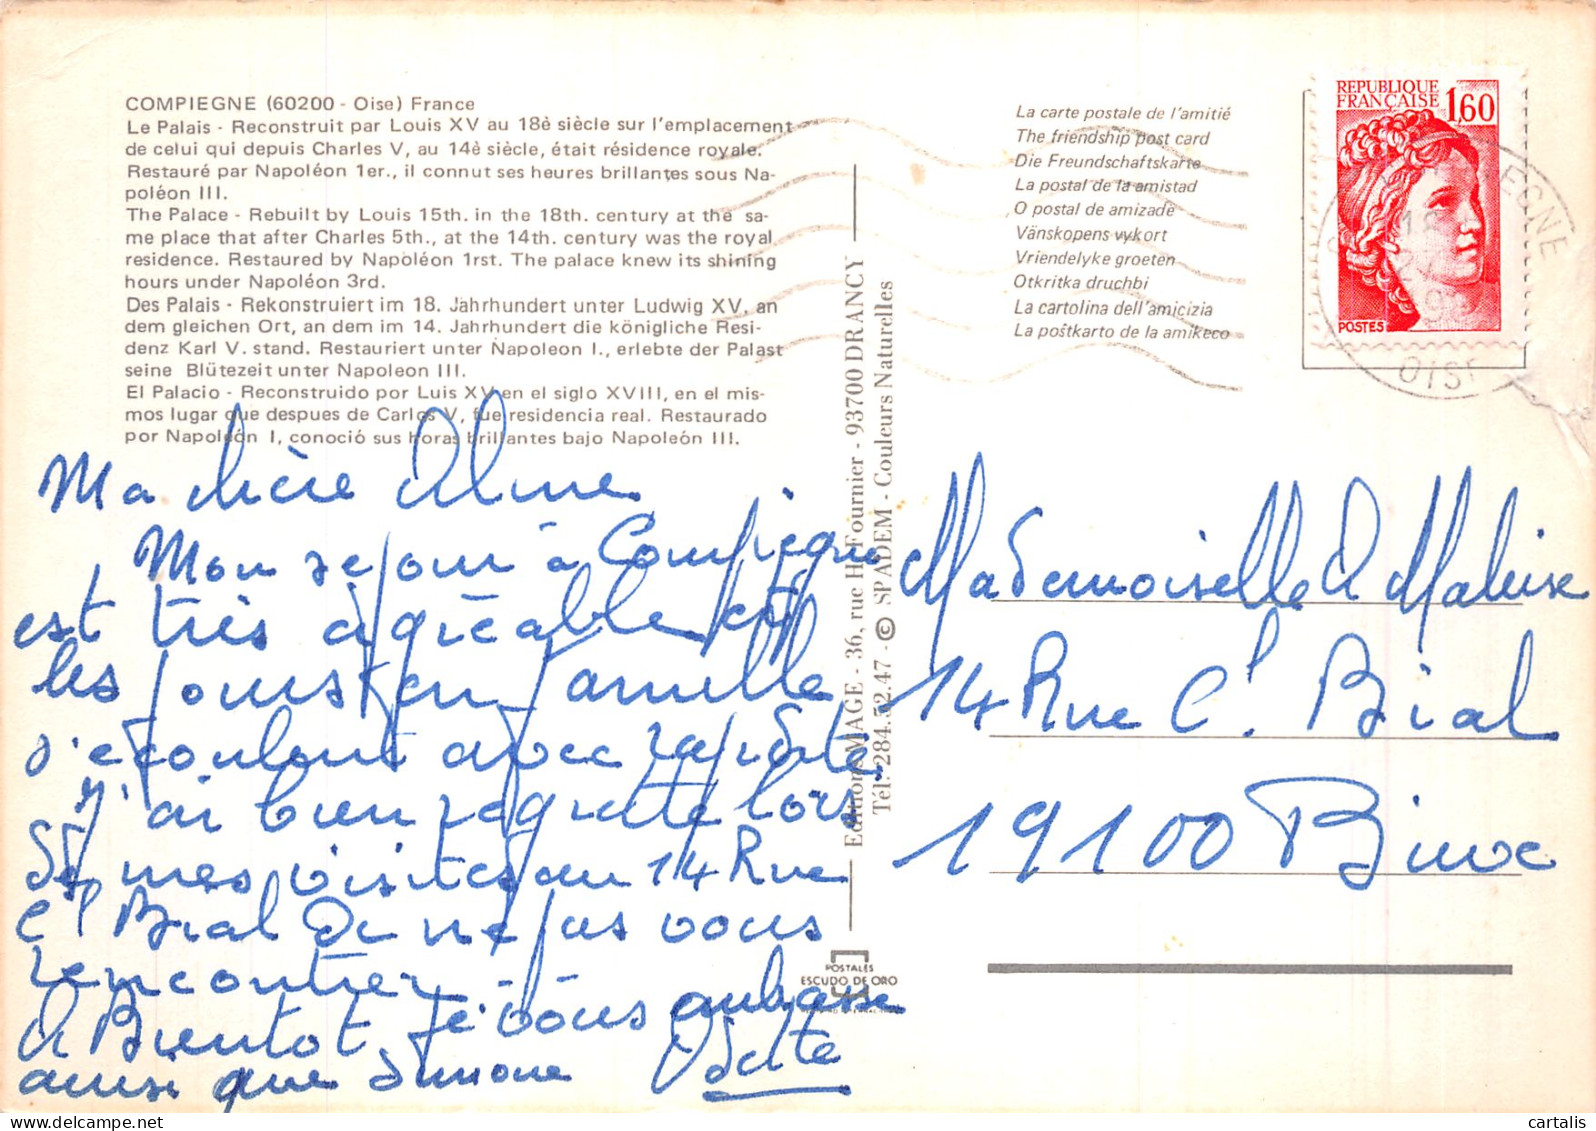 COMPIEGNE (60200 - Oise) France
Le Palais - Reconstruit par Louis XV au 18è siècle sur l'emplacement
de celui qui depuis Charles V, au 14è siècle, était résidence royale.
Restauré par Napoléon 1er., il connut ses heures brillantes sous Na-
poléon III.
The Palace - Rebuilt by Louis 15th. in the 18th. century at the sa-
me place that after Charles 5th., at the 14th. century was the royal
residence. Restaured by Napoléon 1rst. The palace knew its shining
hours under Napoléon 3rd.
Des Palais - Rekonstruiert im 18. Jahrhundert unter Ludwig XV, an
dem gleichen Ort, an dem im 14. Jahrhundert die königliche Resi-
denz Karl V. stand. Restauriert unter Napoleon I., erlebte der Palast
seine Blütezeit unter Napoleon III.
El Palacio - Reconstruido por Luis XV en el siglo XVIII, en el mis-
mos lugar que despues de Carlos V, fue residencia real. Restaurado
por Napoleón I, conoció sus horas brillantes bajo Napoleón III.
Ma chère Aline
Mon séjour à Compiègne
est très agréable et
les jours en famille
s'écoulent avec rapidité
J'ai bien regretté lors
de mes visites au 14 Rue
Cl Bial de ne pas vous
rencontrer.
A Bientot Je vous embrasse
ainsi que Simone Odette
Editions MAGE - 36, rue H. Fournier - 93700 DRANCY
Tél. 284.52.47 - © SPADEM - Couleurs Naturelles
POSTALES
ESCUDO DE ORO
La carte postale de l'amitié
The friendship post card
Die Freundschaftskarte
La postal de la amistad
O postal de amizade
Vänskopens vykort
Vriendelyke groeten
Otkritka druchbi
La cartolina dell'amicizia
La poŝtkarto de la amikeco
REPUBLIQUE
FRANÇAISE 1,60
POSTES
OISE
Mademoiselle A
14 Rue Cl. Bial
19100 Brive
cartalis